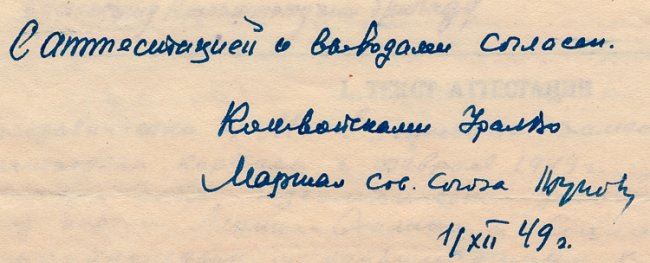 С аттестацией и выводами согласен.
Комвойсками УралВо
Маршал Сов. Союза Жуков
1/XII 49 г.